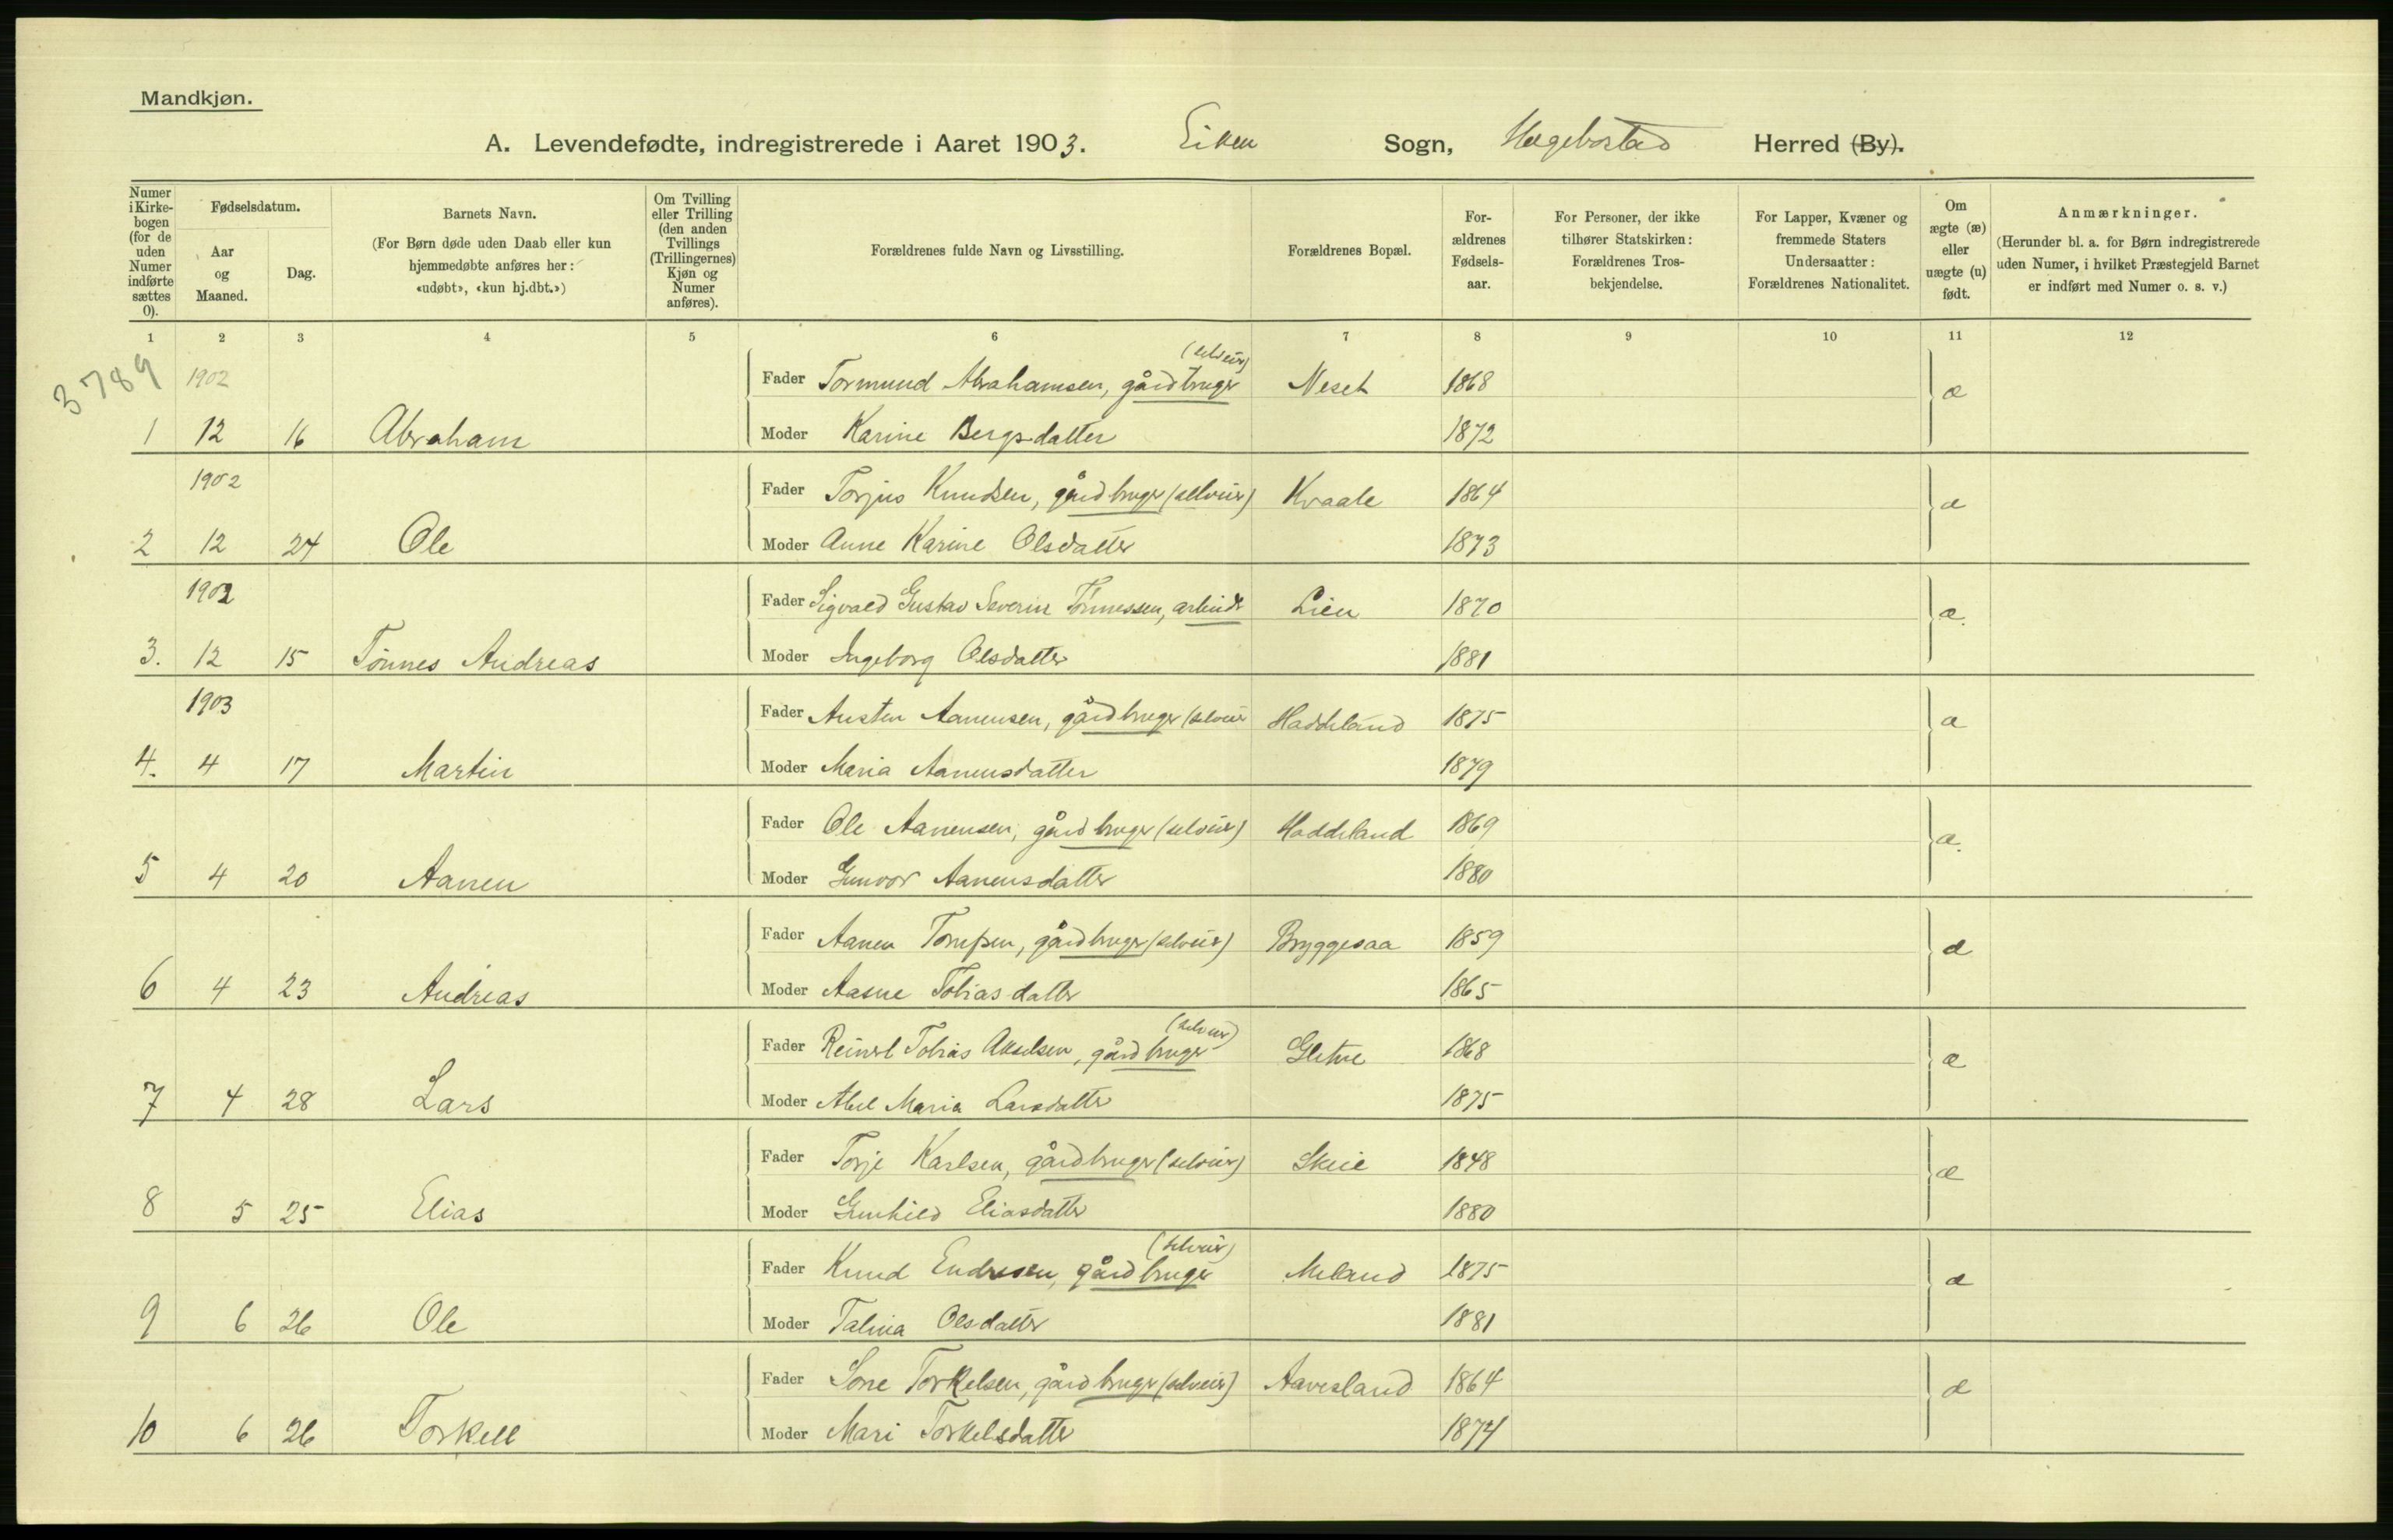 Mandkjøn.
A. Levendefødte, indregistrerede i Aaret 1903. Eiken Sogn, Hægebostad Herred (By).
Numer i Kirkebogen (for de uden Numer indførte sættes 0).
Fødselsdatum.
Aar og Maaned.
Dag.
Barnets Navn.
(For Børn døde uden Daab eller kun hjemmedøbte anføres her: «udøbt», «kun hj.dbt.»)
Om Tvilling eller Trilling (den anden Tvillings (Trillingernes) Kjøn og Numer anføres).
Forældrenes fulde Navn og Livsstilling.
Forældrenes Bopæl.
Forældrenes Fødselsaar.
For Personer, der ikke tilhører Statskirken: Forældrenes Trosbekjendelse.
For Lapper, Kvæner og fremmede Staters Undersaatter: Forældrenes Nationalitet.
Om ægte (æ) eller uægte (u) født.
Anmærkninger.
(Herunder bl. a. for Børn indregistrerede uden Numer, i hvilket Præstegjeld Barnet er indført med Numer o. s. v.)
1 2 3 4 5 6 7 8 9 10 11 12
3789
1902 Fader Tormund Abrahamsen, gårdbruger (selveier) Neset 1868 æ
1 12 16 Abraham Moder Karine Bergsdatter 1872
1902 Fader Torjus Knudsen, gårdbruger (selveier) Kvaale 1864 æ
2 12 24 Ole Moder Anne Karine Olsdatter 1873
1902 Fader Sigvald Gustav Severin Tønnessen, arbeider Lien 1870 æ.
3. 12 15 Tønnes Andreas Moder Ingeborg Olsdatter 1881
1903 Fader Austen Aanensen, gårdbruger (selveier Haddeland 1875 æ
4. 4 17 Martin Moder Maria Aanensdatter 1879
Fader Ole Aanensen, gårdbruger (selveier) Haddeland 1869 æ.
5 4 20 Aanen Moder Gunvor Aanensdatter 1880
Fader Aanen gårdbruger (selveier) Bryggesaa 1859 æ
6 4 23 Andreas Moder Aasne Tobiasdatter 1865
Fader Reinert Tobias Akselsen, gårdbruger (selveier) Gletne 1868 æ
7 4 28 Lars Moder Abel Maria Larsdatter 1875
Fader Torje Karlsen, gårdbruger (selveier) Skeie 1848 æ
8 5 25 Elias Moder Gunhild Eliasdatter 1880
Fader Knud Endresen, gårdbruger (selveier) Meland 1875 æ
9 6 26 Ole Moder Talina Olsdatter 1881
Fader Sone Torkelsen, gårdbruger (selveier) Aavesland 1864 æ
10 6 26 Torkell Moder Mari Torkelsdatter 1874